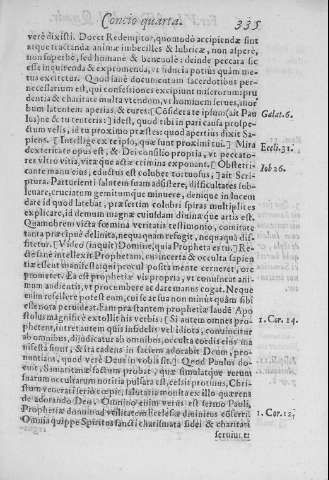 Concio quarta.
335
verè dixisti. Docet Redemptor, quomodò accipiendæ sint
atque tractandæ animæ imbecilles & lubricæ, non asperè,
non superbè, sed humanè & beneuolè: deinde peccara sic
esse inquirenda & expromenda, vt fiducia potiùs quàm me-
tus excitetur. Quod sanè documentum sacerdotibus per-
necessarium est, qui confessiones excipiunt miserorum: pru
dentia & charitate multa vtendum, vt hominem serues, mor
bum latentem aperias, & cures: [Considera te ipsum (ait Pau
lus) ne & tu tenteris:] idest, quod tibi in pari causa prospe-
ctum velis, id tu proximo præstes: quod apertiùs dixit Sa-
piens. [Intellige ex te ipso, quæ sunt proximi tui.] Mira
dexteritate opus est, & Dei consilio propria, vt peccato-
res vltro vitia, vitæque acta crimina exponant. [Obstetri-
cante manu eius, eductus est coluber tortuosus,] ait Scri-
ptura. Parturienti salutem suam adsistere, difficultates sub-
leuare, cruciatem gemitumque minuere, denique in lucem
dare id quod latebat, præsertim colubri spiras multiplices
explicare, id demum magnæ cuiusdam diuinæ que artis est.
Quamobrem victa fœmina veritatis testimonio, comitate
tanta præcipuè delinita, quàm refugit, nequaquã dif-
fitetur. [Video (inquit) Domine, quia Propheta es tu.] Re-
ctè sanè intellexit Prophetam, cui incerta & occulta sapien
tiæ essent manifesta, qui procul posita mente cerneret, ore
promeret. Ea est prophetiæ vis propria, vt conuincat ani-
mum audientis, vt procumbere ac dare manus cogat. Neque
enim refellere potest eam, cui se ac sua non minùs quàm sibi
est nota peruideat. Eam præstantem prophetiæ laudẽ Apo
stolus magnificè extollit his verbis: [Si autem omnes pro-
phetent, intret autem quis infidelis vel idiota, conuincitur
ab omnibus, dijudicatur ab omnibus, occulta cordis eius ma
nifesta fiunt, & ita cadens in faciem adorabit Deum, pro-
nuntians, quod verè Deus in vobis sit.] Quod Paulus do-
cuit, Samaritanæ factum probat, quæ simulatque rerum
suarum occultarum notitia pulsata est, cessit protinus, Chri-
stum venerari seriò cœpit, salutaria monita ex illo quærens
de adorando Deo. Omnino enim verus est sermo Pauli,
Prophetiæ donum ad vtilitatem Ecclesiæ diuinius conferri.
Omnia quippe Spiritus sancti charismata fidei & charitati
seruiut: &
Galat.6.
Eccli.31.
Iob 26.
1. Cor. 14.
1. Cor. 12.